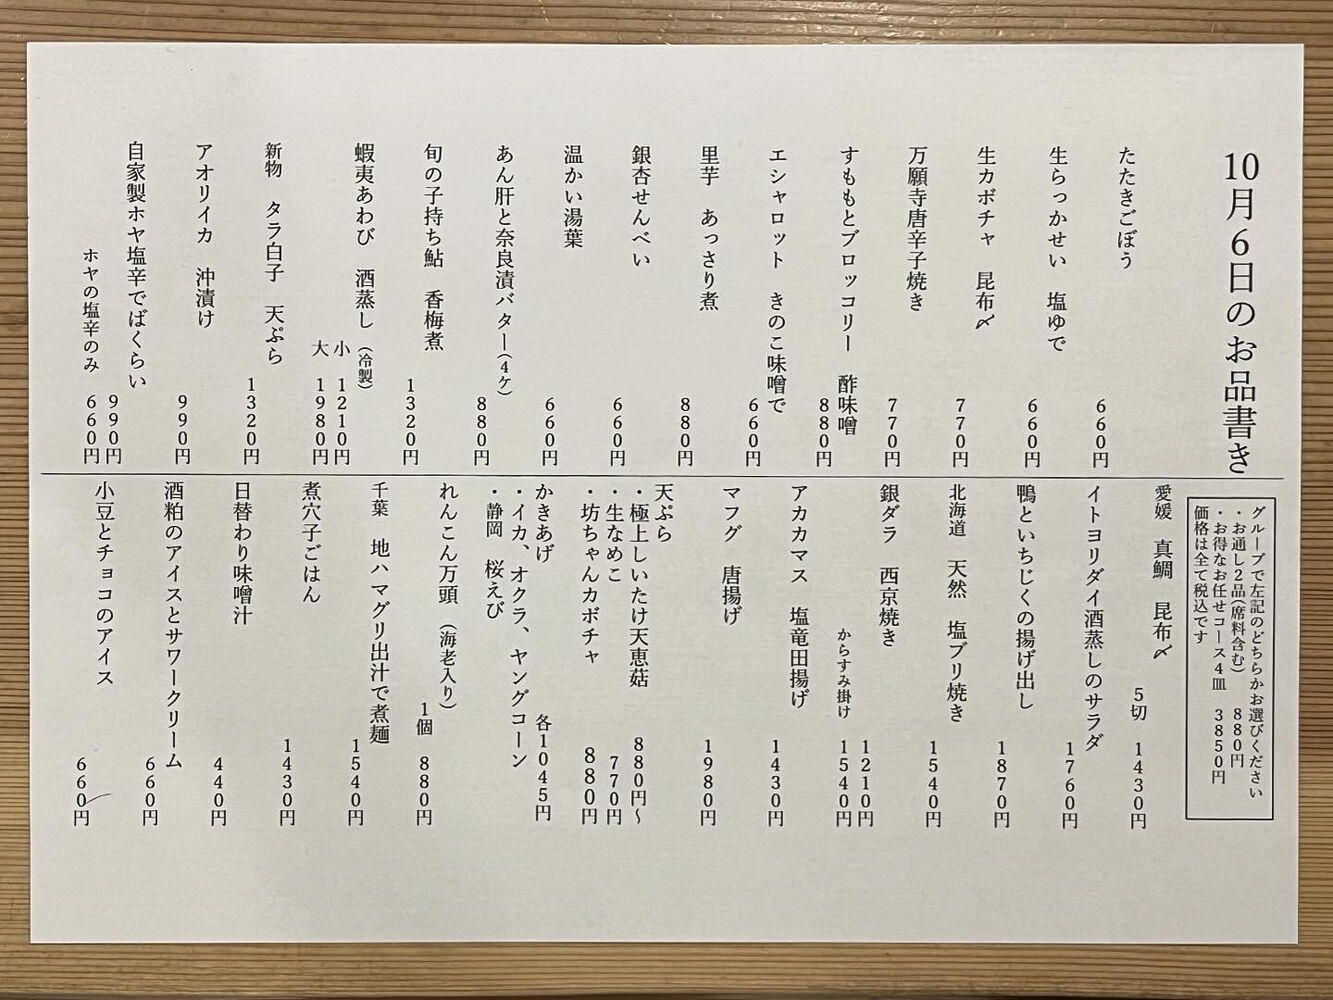 10月6日のお品書き
たたきごぼう
660円
生らっかせい 塩ゆで
660円
生カボチャ 昆布〆
770円
万願寺唐辛子焼き
770円
すももとブロッコリー 酢味噌
880円
エシャロット きのこ味噌で
660円
里芋 あっさり煮
880円
銀杏せんべい
660円
温かい湯葉
660円
あん肝と奈良漬バター(4ケ)
880円
旬の子持ち鮎 香梅煮
1320円
蝦夷あわび 酒蒸し(冷製)
小 1210円
大 1980円
新物 タラ白子 天ぷら
1320円
アオリイカ 沖漬け
990円
自家製ホヤ塩辛でばくらい
990円
ホヤの塩辛のみ 660円
グループで左記のどちらかお選びください
・お通し2品(席料含む) 880円
・お得なお任せコース4皿 3850円
価格は全て税込です
愛媛 真鯛 昆布〆
5切 1430円
イトヨリダイ酒蒸しのサラダ
1760円
鴨といちじくの揚げ出し
1870円
北海道 天然 塩ブリ焼き
1540円
銀ダラ 西京焼き
1210円
からすみ掛け 1540円
アカカマス 塩竜田揚げ
1430円
マフグ 唐揚げ
1980円
天ぷら
・極上しいたけ天恵菇 880円〜
・生なめこ 770円
・坊ちゃんカボチャ 880円
かきあげ 各1045円
・イカ、オクラ、ヤングコーン
・静岡 桜えび
れんこん万頭(海老入り)
1個 880円
千葉 地ハマグリ出汁で煮麺
1540円
煮穴子ごはん
1430円
日替わり味噌汁
440円
酒粕のアイスとサワークリーム
660円
小豆とチョコのアイス
660円